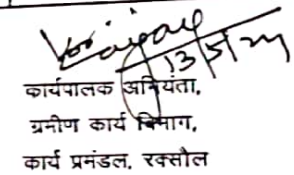 13/5/24
कार्यपालक अभियंता,
ग्रमीण कार्य विभाग,
कार्य प्रमंडल, रक्सौल